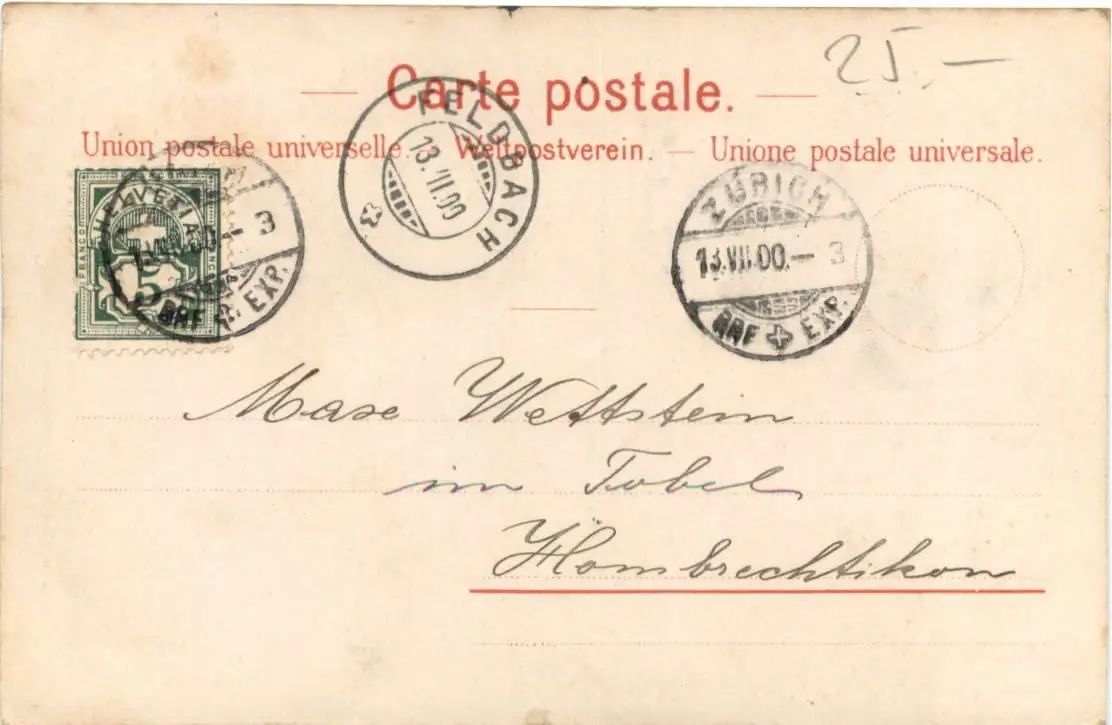 25.—
— Carte postale. —
Union postale universelle. — Weltpostverein. — Unione postale universale.
HELVETIA
FRANCO
5
– 3
BRF EXP.
FELDBACH
13.VII.00
ZÜRICH
13.VII.00.— 3
BRF EXP.
Max Wettstein
im Tobel
Hombrechtikon